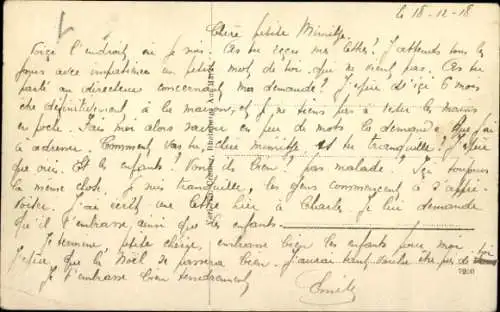 le 18-12-18
Chère petite Minette
Voici l'endroit où je suis. As tu reçu ma lettre? J'attends tous les
jours avec impatience un petit mot de toi que ne vient pas. As tu
parlé au directeur concernant ma demande? J'espère de ici 6 mois
être définitivement à la maison, et je ne tiens pas à rester les mains
en poche. Fais moi alors savoir en peu de mots la demande que j'ai
à adresser. Comment vas tu chère minette, es tu tranquille? J'espère
que oui. Et les enfants? Vont ils bien? pas malade. Ici toujours
la même chose. Je suis tranquille, les gens commencent à s'appri-
voiser. J'ai écrit une lettre hier à Charles. Je lui demande
qu'il t'embrasse ainsi que les enfants.
Je termine petite chérie, embrasse bien les enfants pour moi.
J'espère que la Noël se passera bien. J'aurai tant voulu être près de toi
Je t'embrasse bien tendrement
7200